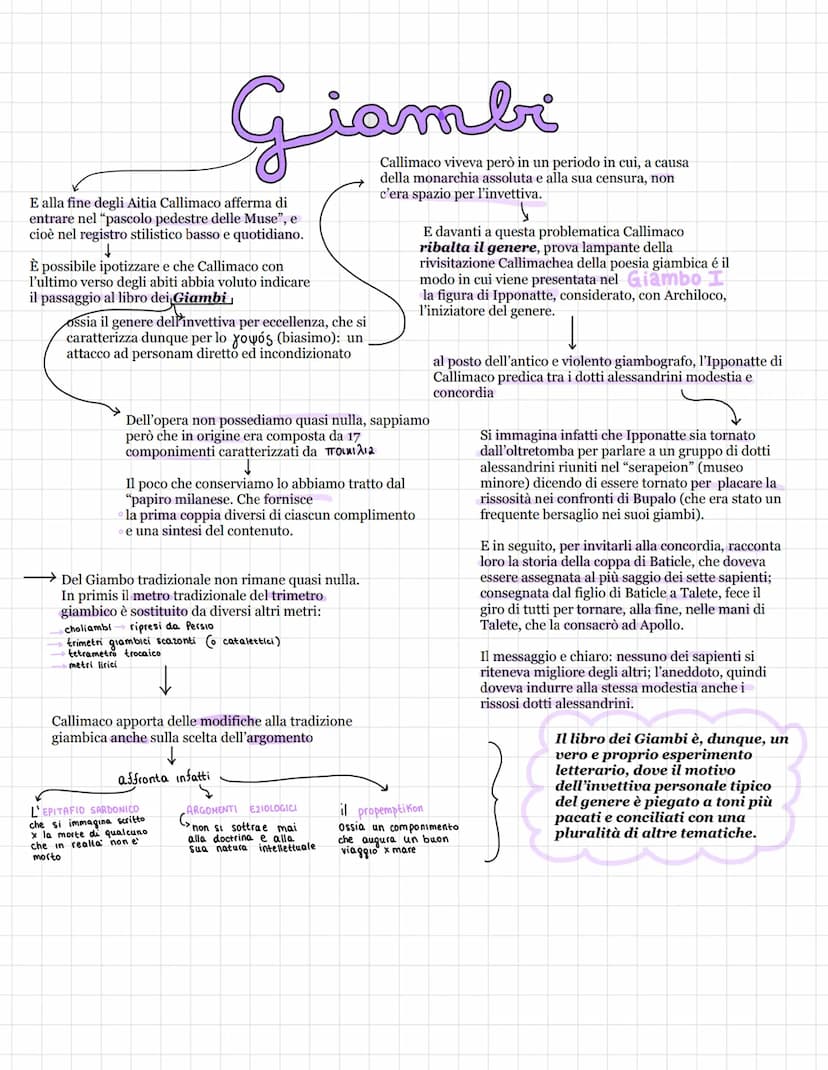 Giambi
E alla fine degli Aitia Callimaco afferma di
entrare nel “pascolo pedestre delle Muse”, e
cioè nel registro stilistico basso e quotidiano.
È possibile ipotizzare e che Callimaco con
l’ultimo verso degli abiti abbia voluto indicare
il passaggio al libro dei Giambi
ossia il genere dell’invettiva per eccellenza, che si
caratterizza dunque per lo ψοψós (biasimo): un
attacco ad personam diretto ed incondizionato
Callimaco viveva però in un periodo in cui, a causa
della monarchia assoluta e alla sua censura, non
c’era spazio per l’invettiva.
E davanti a questa problematica Callimaco
ribalta il genere, prova lampante della
rivisitazione Callimachea della poesia giambica é il
modo in cui viene presentata nel Giambo I
la figura di Ipponatte, considerato, con Archiloco,
l’iniziatore del genere.
al posto dell’antico e violento giambografo, l’Ipponatte di
Callimaco predica tra i dotti alessandrini modestia e
concordia
Si immagina infatti che Ipponatte sia tornato
dall’oltretomba per parlare a un gruppo di dotti
alessandrini riuniti nel “serapeion” (museo
minore) dicendo di essere tornato per placare la
rissosità nei confronti di Bupalo (che era stato un
frequente bersaglio nei suoi giambi).
E in seguito, per invitarli alla concordia, racconta
loro la storia della coppa di Baticle, che doveva
essere assegnata al più saggio dei sette sapienti;
consegnata dal figlio di Baticle a Talete, fece il
giro di tutti per tornare, alla fine, nelle mani di
Talete, che la consacrò ad Apollo.
Il messaggio e chiaro: nessuno dei sapienti si
riteneva migliore degli altri; l’aneddoto, quindi
doveva indurre alla stessa modestia anche i
rissosi dotti alessandrini.
Dell’opera non possediamo quasi nulla, sappiamo
però che in origine era composta da 17
componimenti caratterizzati da ποικιλιa
Il poco che conserviamo lo abbiamo tratto dal
“papiro milanese. Che fornisce
la prima coppia diversi di ciascun complimento
e una sintesi del contenuto.
Del Giambo tradizionale non rimane quasi nulla.
In primis il metro tradizionale del trimetro
giambico è sostituito da diversi altri metri:
choliambi → ripresi da Persio
trimetri giambici scazonti (o catalettici)
tetrametro trocaico
metri lirici
Callimaco apporta delle modifiche alla tradizione
giambica anche sulla scelta dell’argomento
affronta infatti
L’EPITAFIO SARDONICO
che si immagina scritto
x la morte di qualcuno
che in realta’ non e’
morto
ARGOMENTI EZIOLOGICI
non si sottrae mai
alla doctrina e alla
sua natura intellettuale
il propemptikon
ossia un componimento
che augura un buon
viaggio x mare
Il libro dei Giambi è, dunque, un
vero e proprio esperimento
letterario, dove il motivo
dell’invettiva personale tipico
del genere è piegato a toni più
pacati e conciliati con una
pluralità di altre tematiche.